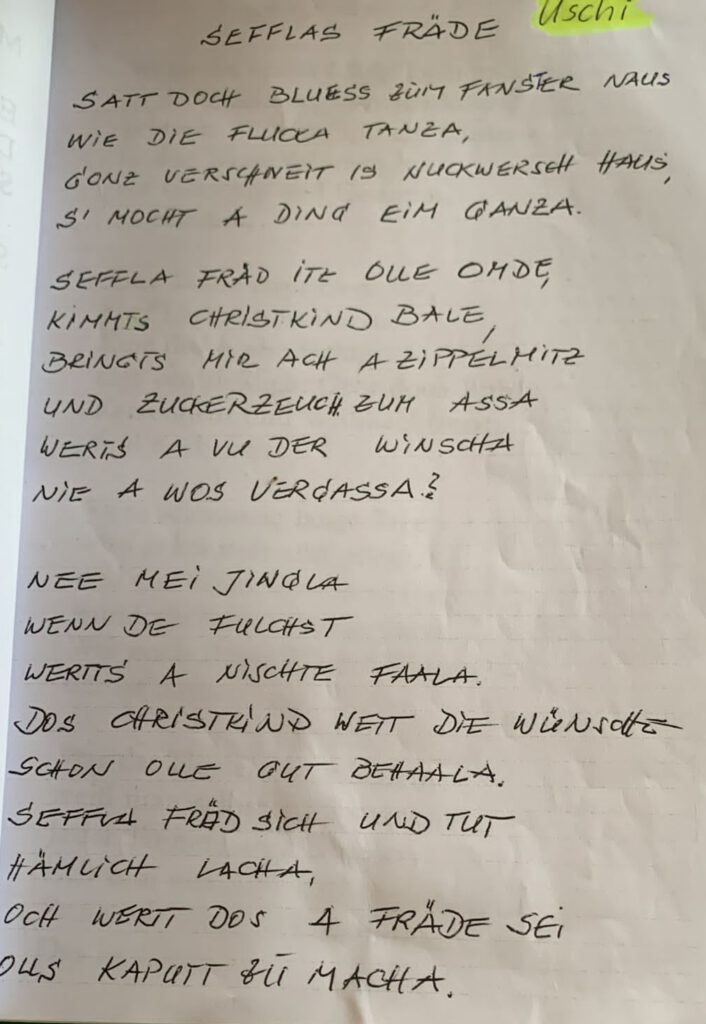 Uschi
SEFFLAS FRÄDE
SATT DOCH BLUESS ZUM FANSTER NAUS
WIE DIE FLUCKA TANZA,
GONZ VERSCHNEIT IS NUCKWERSCH HAUS,
S' MOCHT A DING EIM GANZA.
SEFFLA FRÄD ITZ OLLE OMDE,
KIMMTS CHRISTKIND BALE,
BRINGTS MIR ACH A ZIPPELMITZ
UND ZUCKERZEUCH ZUM ASSA
WERTS A VU DER WINSCHA
NIE A WOS VERGASSA?
NEE MEI JINGLA
WENN DE FULCHST
WERTTS A NISCHTE FAALA.
DOS CHRISTKIND WETT DIE WÜNSCHE
SCHON OLLE GUT BEHAALA.
SEFFLA FRÄD SICH UND TUT
HÄMLICH LACHA,
OCH WERTT DOS A FRÄDE SEI
OLLS KAPUTT ZU MACHA.